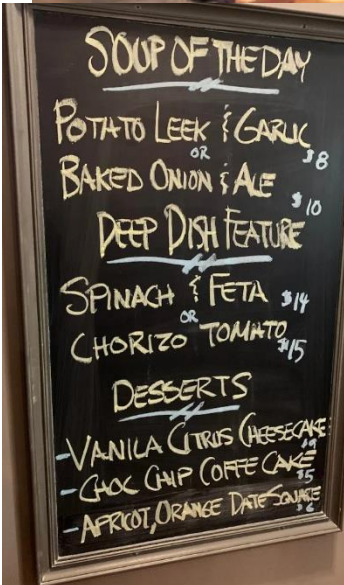 SOUP OF THE DAY
POTATO LEEK & GARLIC
OR
$8
BAKED ONION & ALE
$10
DEEP DISH FEATURE
SPINACH & FETA $14
OR
CHORIZO TOMATO $15
DESSERTS
-VANILA CITRUS CHEESECAKE
$9
-CHOC CHIP COFFE CAKE
$5
-APRICOT, ORANGE DATE SQUARE
$6